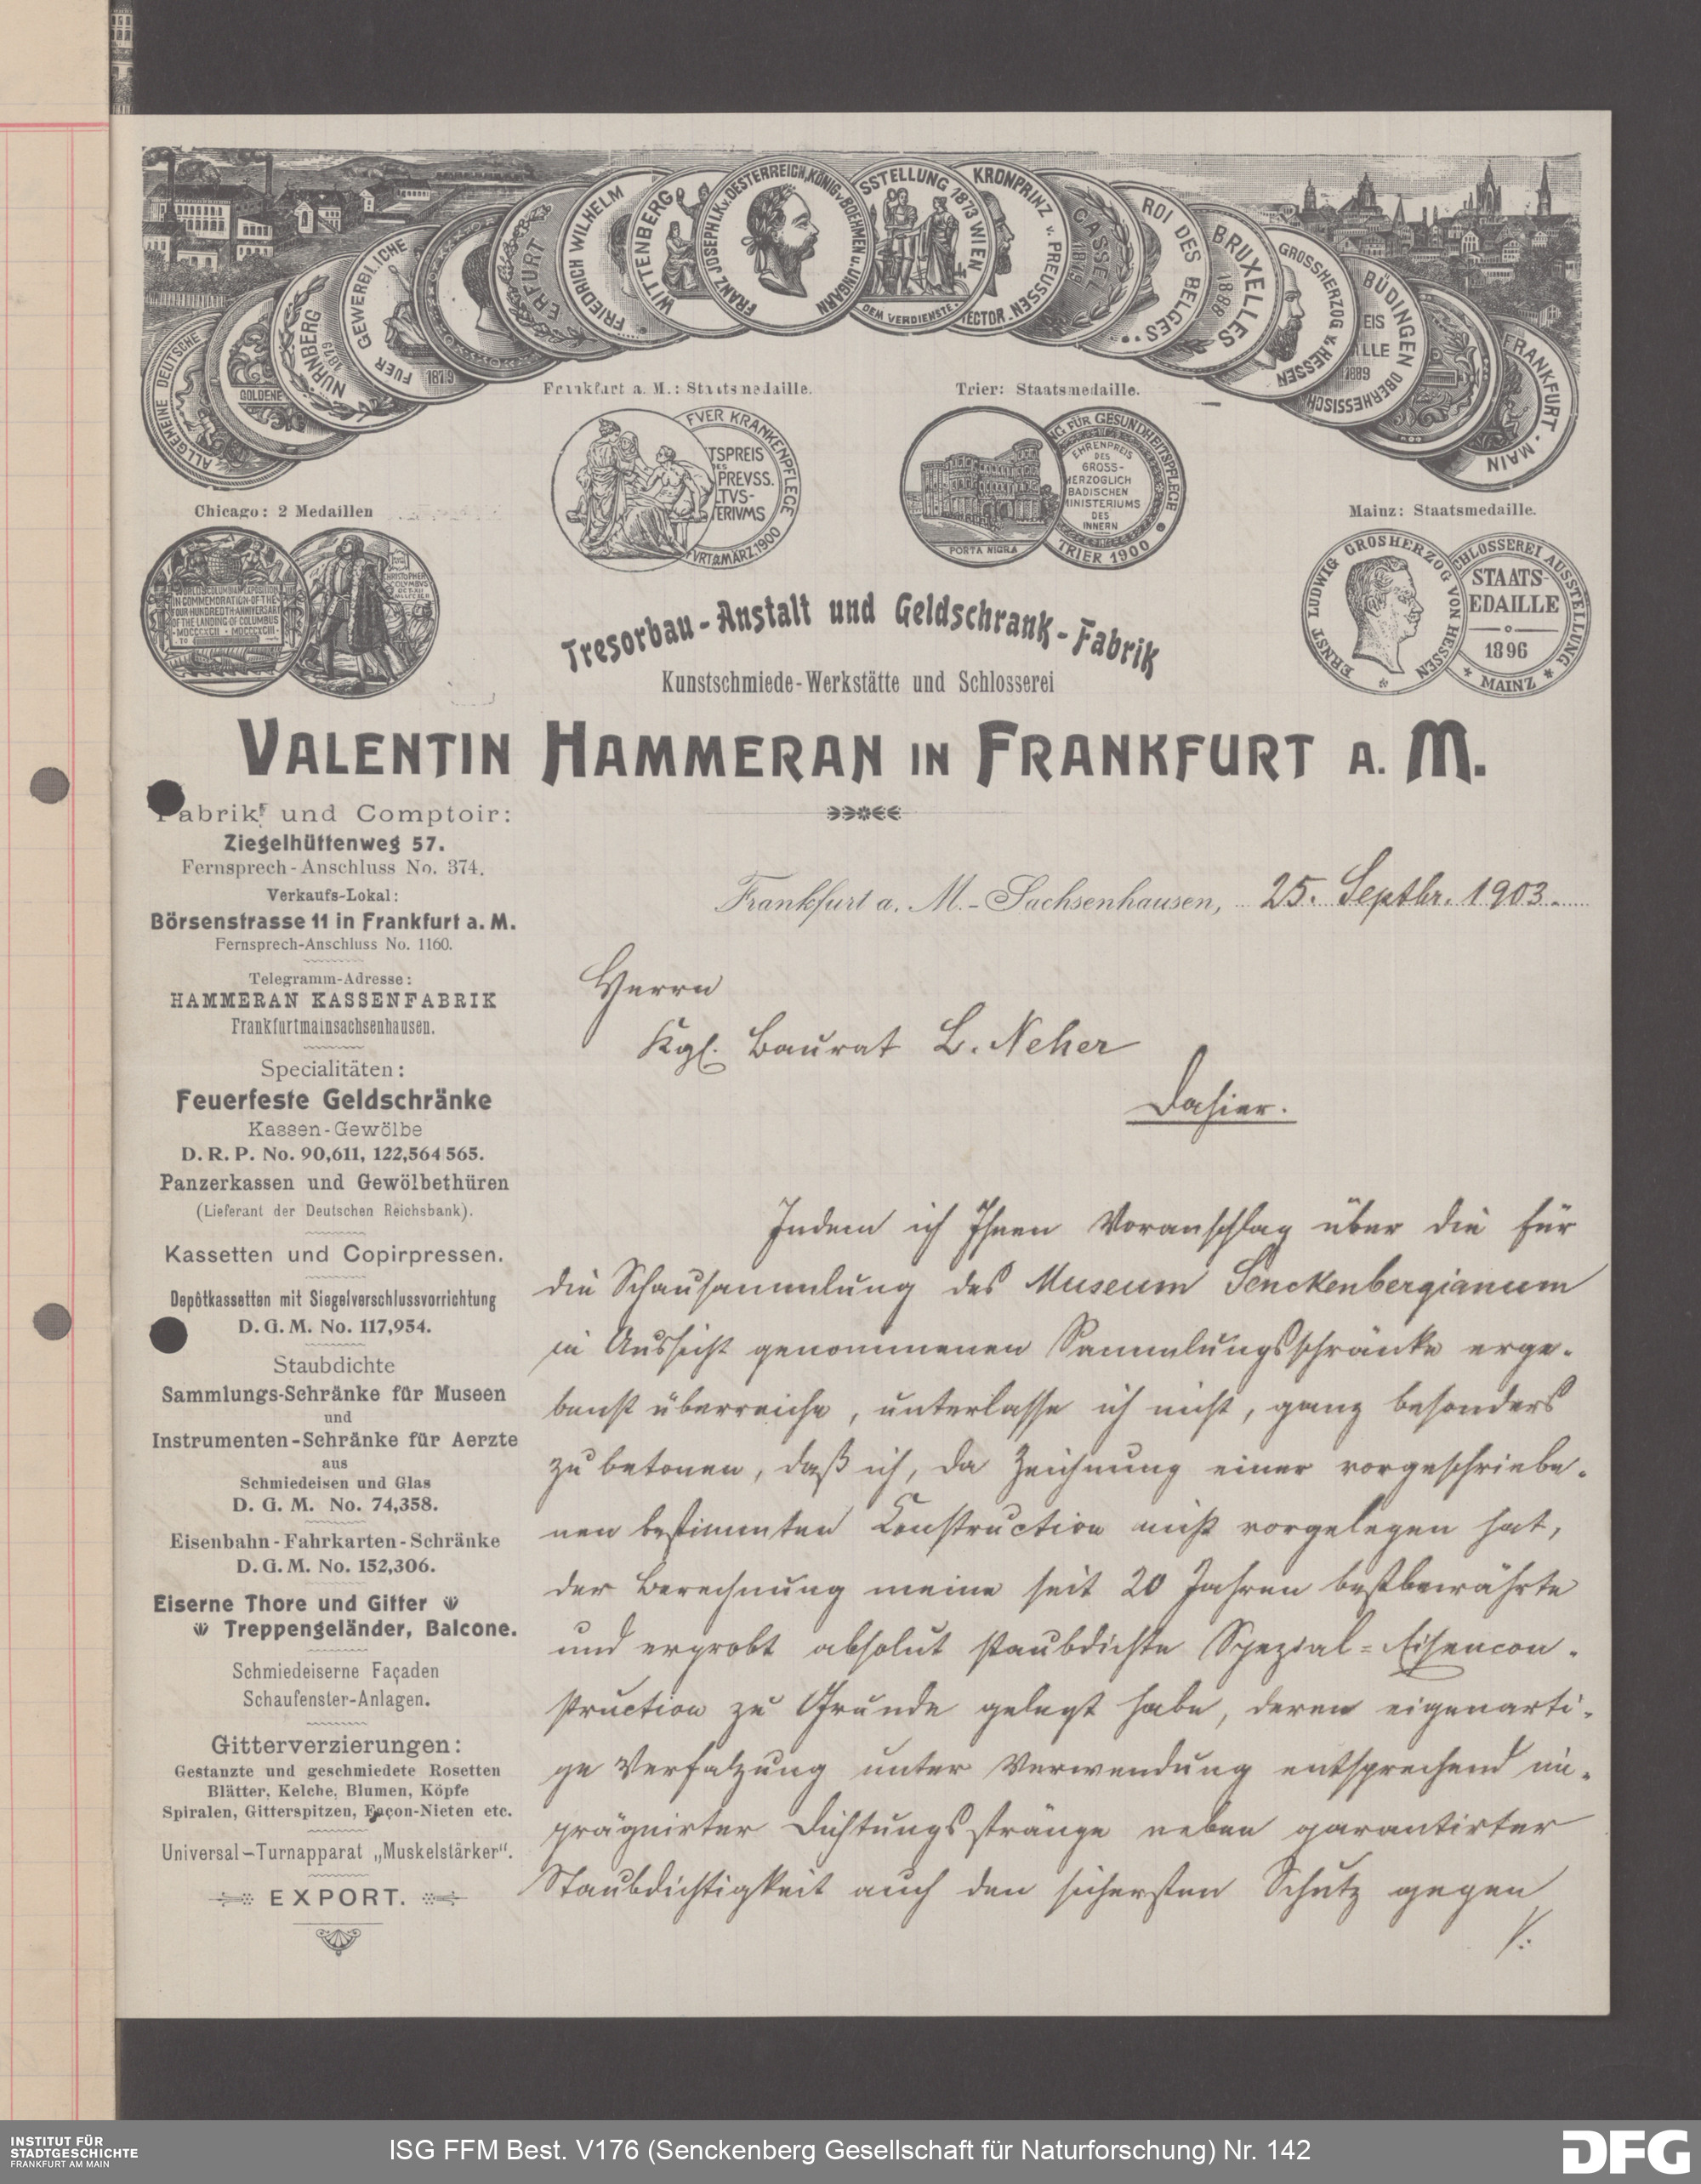 ALLGEMEINE DEUTSCHE
GOLDENE
NÜRNBERG
1879
FUER GEWERBLICHE
1879
ERFURT
FRIEDRICH WILHELM
WITTENBERG
FRANZ JOSEPH I. K. v. OESTERREICH, KÖNIG v. BOEHMEN u. UNGARN
SSTELLUNG 1873 WIEN
DEM VERDIENSTE
KRONPRINZ v. PREUSSEN
ECTOR
CASSEL
ROI DES BELGES
BRUXELLES
1888
GROSSHERZOG v. HESSEN
BÜDINGEN OBERHESSISCH
EIS
LLE
1889
FRANKFURT · MAIN
Frankfurt a. M.: Staatsmedaille.
Trier: Staatsmedaille.
FVER KRANKENPFLEGE
TSPREIS
DES
PREVSS.
LTVS-
ERIVMS
FVRT a MÄRZ. 1900
PORTA NIGRA
NG FÜR GESUNDHEITSPFLEGE
EHRENPREIS
DES
GROSS-
HERZOGLICH
BADISCHEN
MINISTERIUMS
DES
INNERN
TRIER 1900
Chicago: 2 Medaillen
WORLD'S COLUMBIAN EXPOSITION
IN COMMEMORATION OF THE
FOUR HUNDREDTH ANNIVERSARY
OF THE LANDING OF COLUMBUS
MDCCCXCII · MDCCCXCIII
TO
CHRISTOPHER
COLVMBVS
OCT. XII
Mainz: Staatsmedaille.
ERNST LUDWIG GROSHERZOG VON HESSEN
CHLOSSEREI AUSSTELLUNG
STAATS-
EDAILLE
1896
* MAINZ *
Tresorbau-Anstalt und Geldschrank-Fabrik
Kunstschmiede-Werkstätte und Schlosserei
VALENTIN HAMMERAN IN FRANKFURT A. M.
Fabrik und Comptoir:
Ziegelhüttenweg 57.
Fernsprech-Anschluss No. 374.
Verkaufs-Lokal:
Börsenstrasse 11 in Frankfurt a. M.
Fernsprech-Anschluss No. 1160.
Telegramm-Adresse:
HAMMERAN KASSENFABRIK
Frankfurtmainsachsenhausen.
Specialitäten:
Feuerfeste Geldschränke
Kassen-Gewölbe
D. R. P. No. 90,611, 122,564 565.
Panzerkassen und Gewölbethüren
(Lieferant der Deutschen Reichsbank).
Kassetten und Copirpressen.
Depôtkassetten mit Siegelverschlussvorrichtung
D. G. M. No. 117,954.
Staubdichte
Sammlungs-Schränke für Museen
und
Instrumenten-Schränke für Aerzte
aus
Schmiedeisen und Glas
D. G. M. No. 74,358.
Eisenbahn-Fahrkarten-Schränke
D. G. M. No. 152,306.
Eiserne Thore und Gitter
Treppengeländer, Balcone.
Schmiedeiserne Façaden
Schaufenster-Anlagen.
Gitterverzierungen:
Gestanzte und geschmiedete Rosetten
Blätter, Kelche, Blumen, Köpfe
Spiralen, Gitterspitzen, Façon-Nieten etc.
Universal-Turnapparat „Muskelstärker".
EXPORT.
Frankfurt a. M.-Sachsenhausen, 25. Septbr. 1903.
Herrn
Kgl. Baurat L. Neher
Dahier.
Indem ich Ihnen Voranschlag über die für
die Schausammlung des Museum Senckenbergianum
in Aussicht genommenen Sammlungsschränke erge-
benst überreiche, unterlasse ich nicht, ganz besonders
zu betonen, daß ich, da Zeichnung einer vorgeschriebe-
nen bestimmten Construction nicht vorgelegen hat,
der Berechnung meine seit 20 Jahren bestbewährte
und erprobt absolut staubdichte Spezial-Eisencon-
struction zu Grunde gelegt habe, deren eigenarti-
ge Verfalzung unter Verwendung entsprechend im-
prägnirter Dichtungsstränge neben garantirter
Staubdichtigkeit auch den sichersten Schutz gegen
/:
INSTITUT FÜR
STADTGESCHICHTE
FRANKFURT AM MAIN
ISG FFM Best. V176 (Senckenberg Gesellschaft für Naturforschung) Nr. 142
DFG